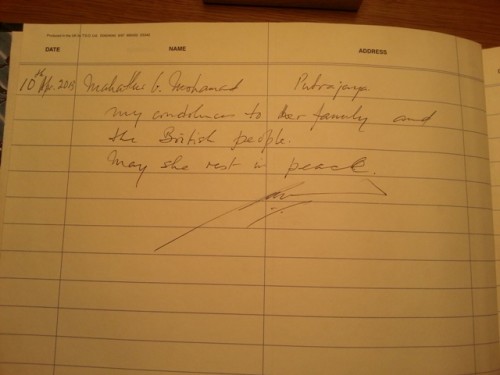 DATE NAME ADDRESS
10th Ap. 2013 Mahathir b. Mohamad Putrajaya
my condolences to her family and
the British people.
May she rest in peace.